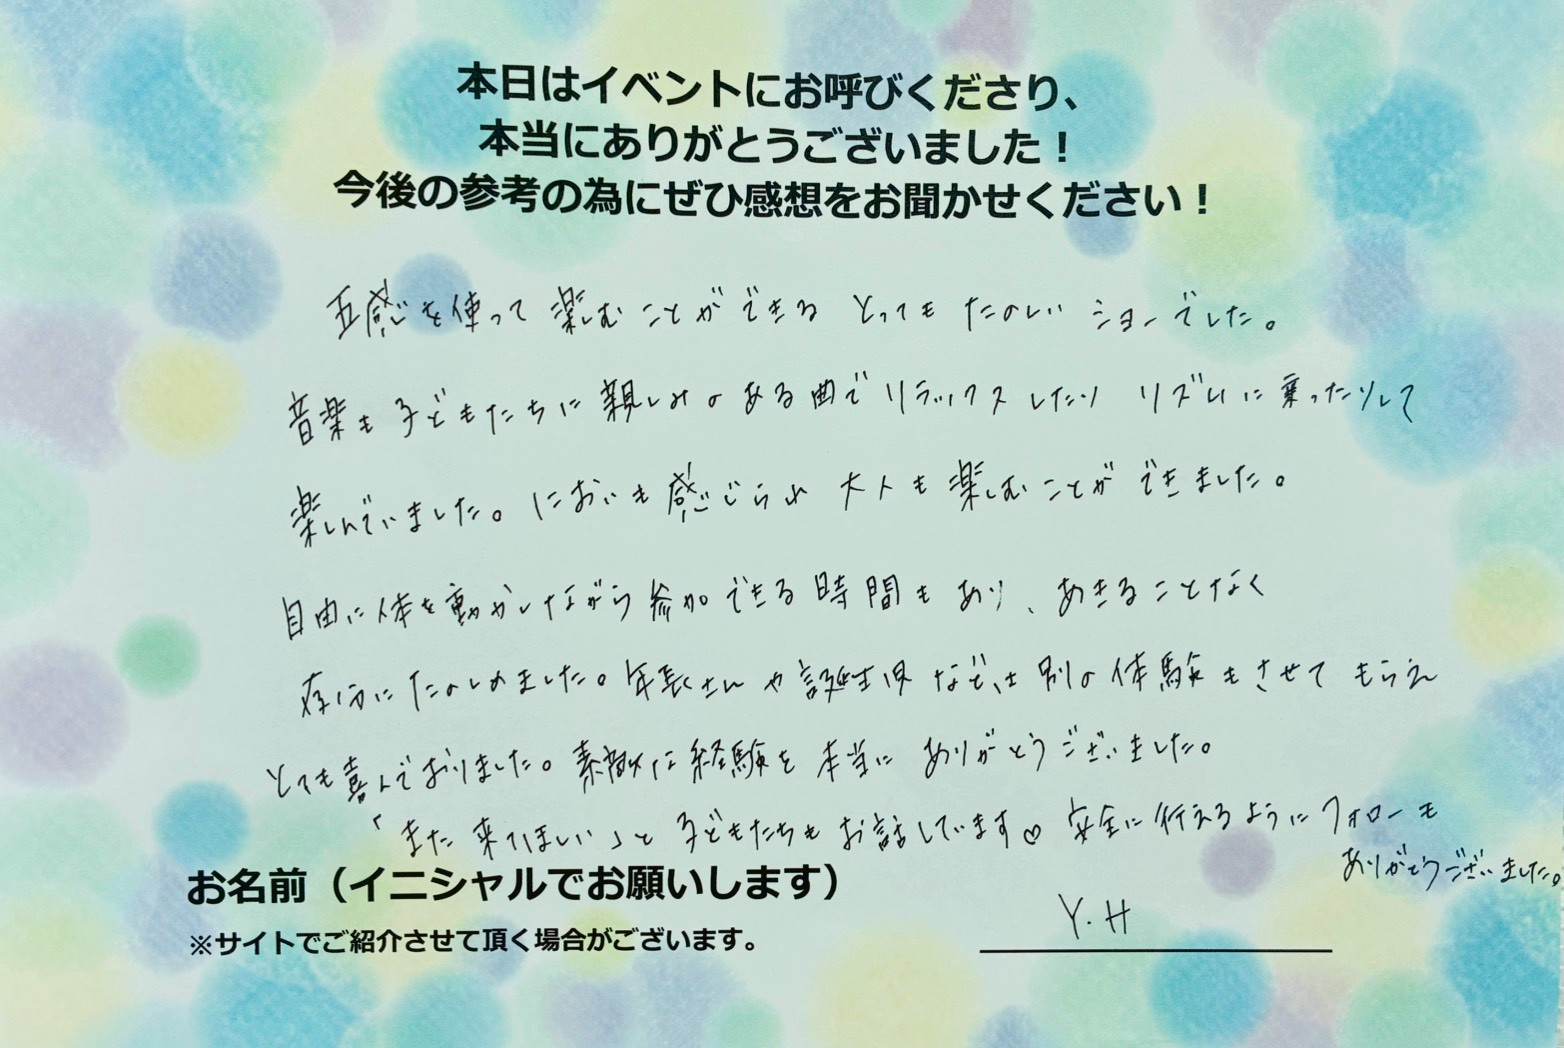 本日はイベントにお呼びくださり、
本当にありがとうございました！
今後の参考の為にぜひ感想をお聞かせください！
五感を使って楽しむことができる とっても たのしい ショーでした。
音楽も 子どもたちに 親しみの ある 曲で リラックス したり リズムに 乗ったりして
楽しんでいました。においも 感じられ 大人も 楽しむ ことが できました。
自由に 体を 動かしながら 参加 できる 時間も あり、あきることなく
存分に たのしめました。年長さん や 誕生児 などは 別の 体験も させて もらえ
とても喜んでおりました。素敵な経験を 本当に ありがとうございました。
「また 来てほしい」と 子どもたちも お話しています♡ 安全に 行えるように フォローも
ありがとうございました。
お名前（イニシャルでお願いします）
※サイトでご紹介させて頂く場合がございます。
Y.H